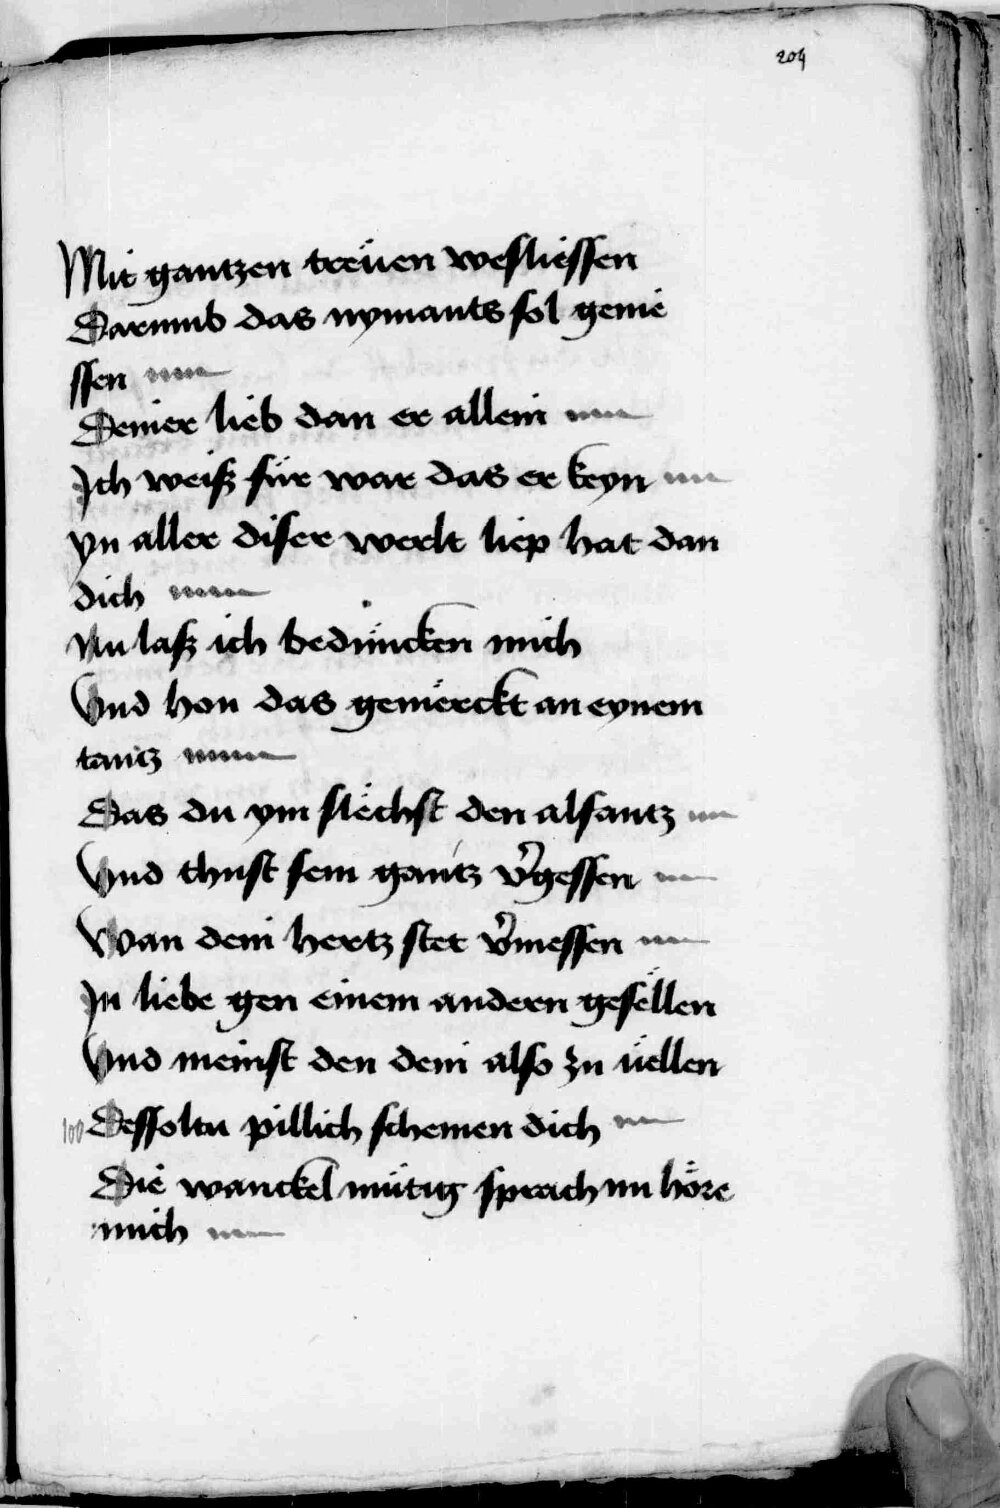 204
Mit gantzen treüen wesliessen
Darumb das nymants sol genie
ssen
Deiner lieb dan er allein
Ich weiß für war das er keyn
yn aller diser werlt liep hat dan
dich
Nu laß ich bedüncken mich
Und hon das gemërckt an eynem
tantz
Das du ym slëchst den alsantz
Und thust sein gantz v̄gessen
Wan dein hertz stet v̄messen
In liebe gen einem andern gesëllen
Und meinst den dein also zu üellen
100 Dessoltu pillich schemen dich
Die wanckel mütig sprach nu höre
mich